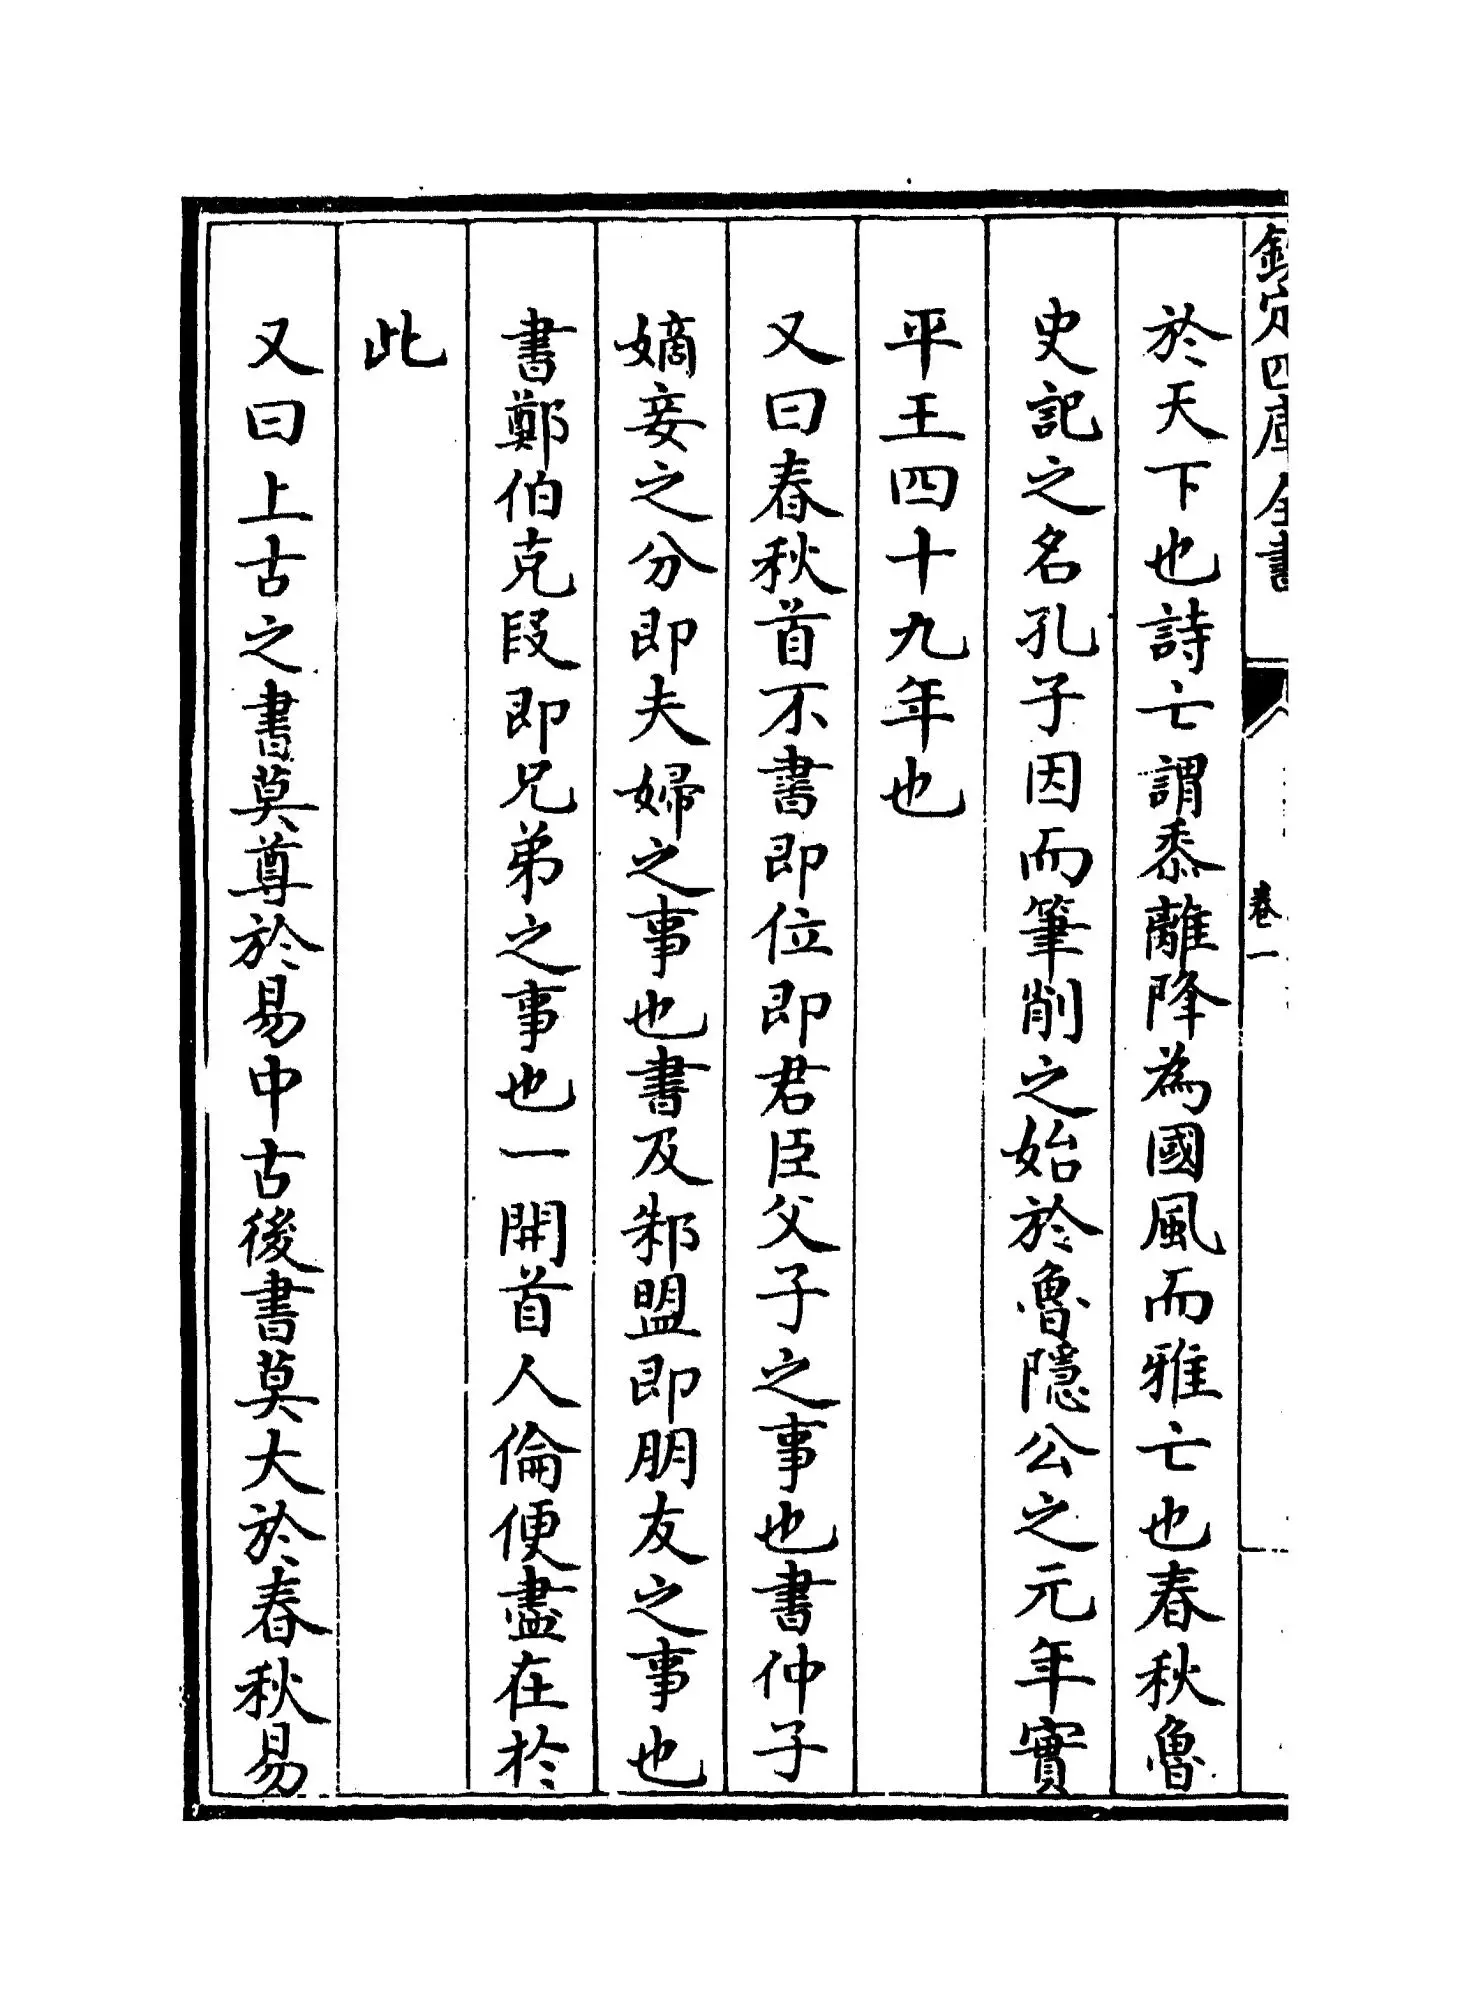 欽定四庫全書
卷一
於天下也詩亡謂黍離降為國風而雅亡也春秋魯
史記之名孔子因而筆削之始於魯隱公之元年實
平王四十九年也
又曰春秋首不書即位即君臣父子之事也書仲子
嫡妾之分即夫婦之事也書及邾盟即朋友之事也
書鄭伯克段即兄弟之事也一開首人倫便盡在於
此
又曰上古之書莫尊於易中古後書莫大於春秋易